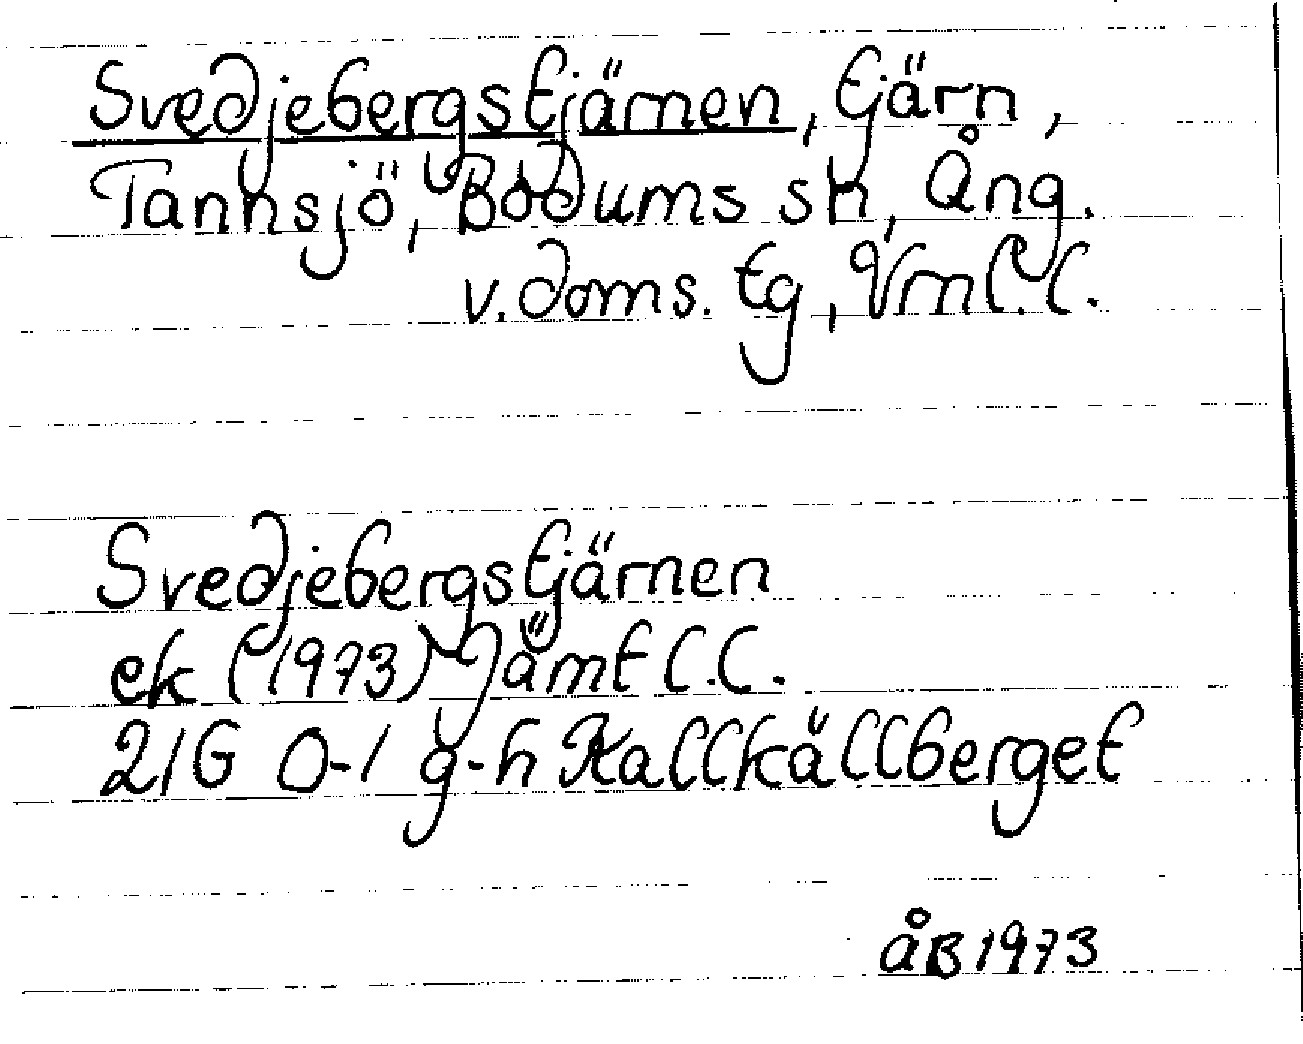 Svedjebergstjärnen, tjärn,
Tannsjö, Bodums sn, Ång.
v. doms. tg, Vrnl. l.
Svedjebergstjärnen
ek (1973) Jämt l. l.
21G 0-1 g-h Kallkällberget
åB 1973